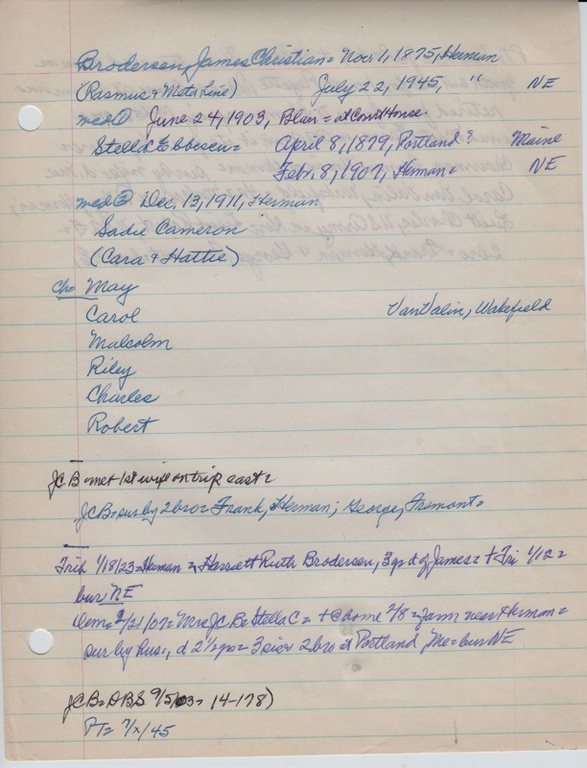 Brodersen, James Christian = Nov. 1, 1875, Herman
(Rasmus & Meta Line) July 22, 1945, " NE
med ① June 24, 1903, Blair = at Court House.
Stella C Ebbesen = April 8, 1879, Portland? Maine
Febr. 8, 1907, Herman = NE
med ② Dec, 13, 1911, Herman
Sadie Cameron
(Cara & Hattie)
Ch: May
Carol VanValin, Wakefield
Malcolm
Riley
Charles
Robert
JC B = met 1st wife on trip east =
JCB = sur by 2 bro = Frank, Herman; George, Fremont =
Trib 1/18/23 = Herman = Harriett Ruth Brodersen, 3 yr d of James = + Fri 1/12 =
bur NE
Dem = 2/21/07 = Mrs JC B = Stella C = + @ home 2/8 = farm near Herman =
sur by hus, d 2½ yo = 3 sis & 2 bro @ Portland Me = bur NE
JCB = DBS 9/5/03 = 14-178)
PT = 7/x/45